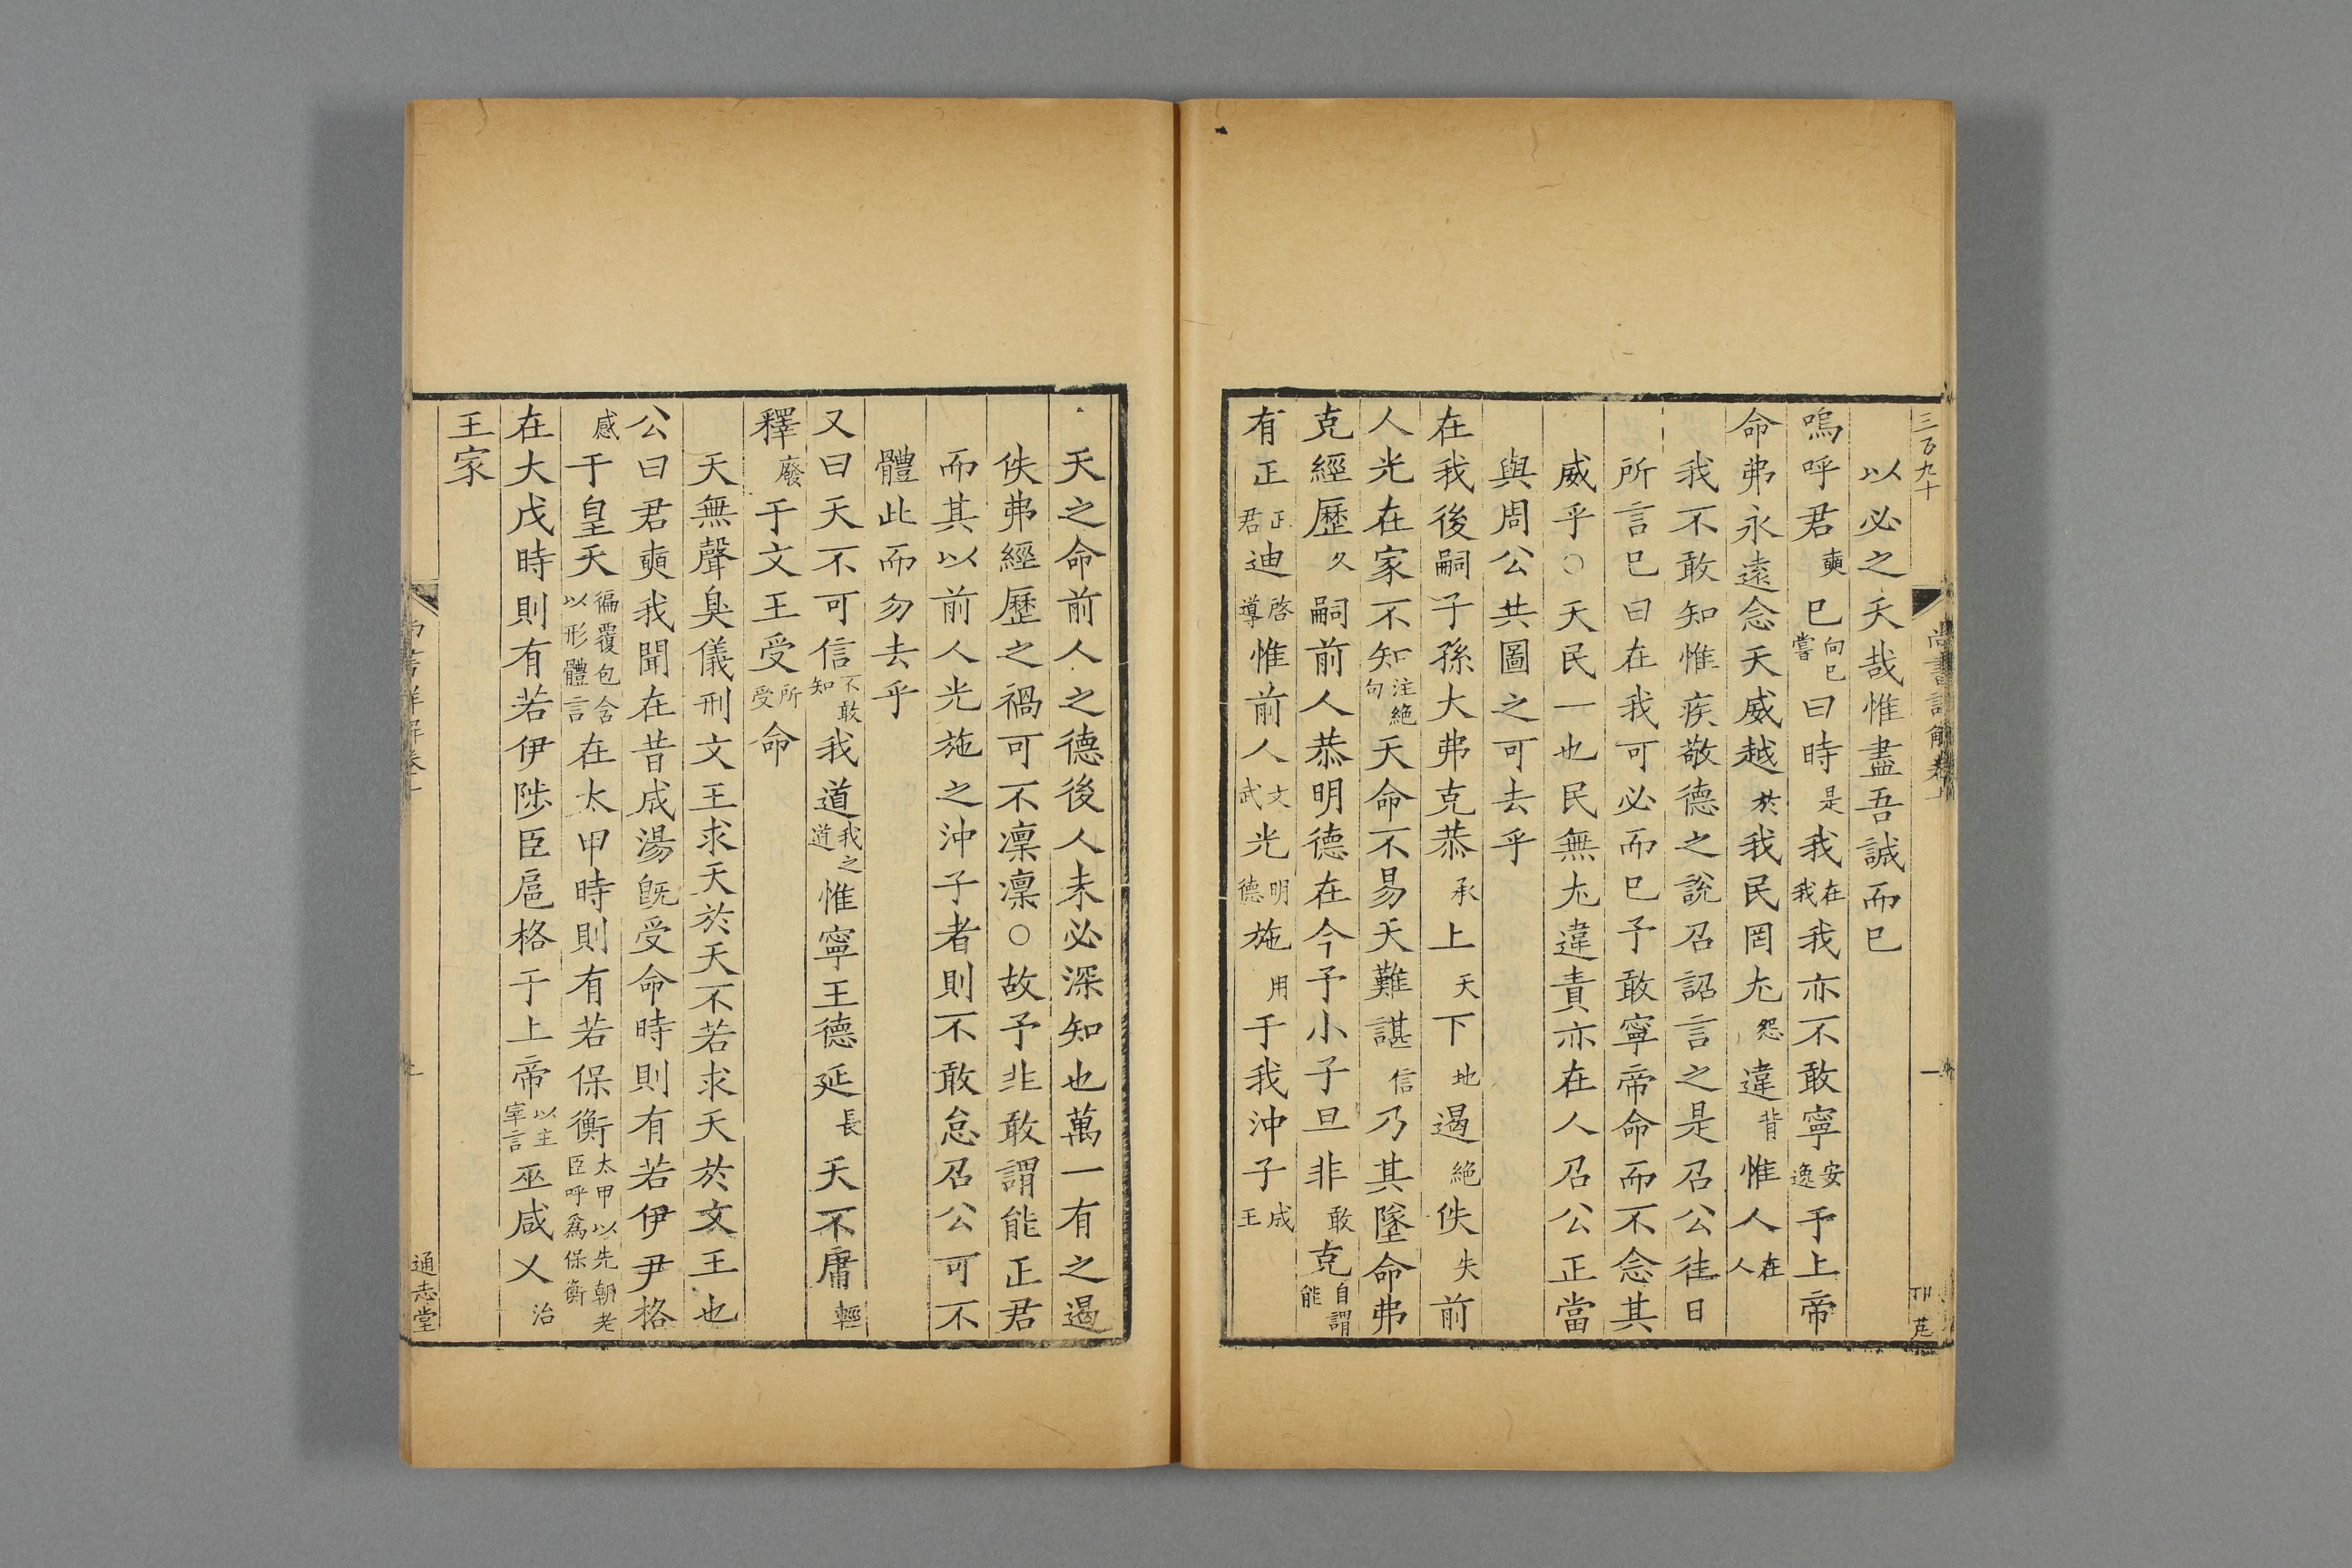 三百九十
以必之天哉惟盡吾誠而已
嗚呼君奭已向已嘗曰時是我在我我亦不敢寧安逸于上帝
命弗永遠念天威越於我民罔尤怨違背惟人在人
我不敢知惟疾敬德之說召詔言之是召公往日
所言已曰在我可必而已予敢寧帝命而不念其
威乎○天民一也民無尤違責亦在人召公正當
與周公共圖之可去乎
在我後嗣子孫大弗克恭承上天下地遏絕佚失前
人光在家不知注絕句天命不易天難諶信乃其墜命弗
克經歷久嗣前人恭明德在今予小子旦非敢克自謂能
有正正君迪啓導惟前人文武光明德施用于我沖子成王
尚書詳解卷
刊
天之命前人之德後人未必深知也萬一有之遏
佚弗經歷之禍可不凜凜○故予非敢謂能正君
而其以前人光施之沖子者則不敢怠召公可不
體此而勿去乎
又曰天不可信不敢知我道我之道惟寧王德延長天不庸輕
釋廢于文王受所受命
天無聲臭儀刑文王求天於天不若求天於文王也
公曰君奭我聞在昔成湯旣受命時則有若伊尹格
感于皇天徧覆包含以形體言在太甲時則有若保衡太甲以先朝老臣呼爲保衡
在大戊時則有若伊陟臣扈格于上帝以主宰言巫咸乂治
王家
通志堂